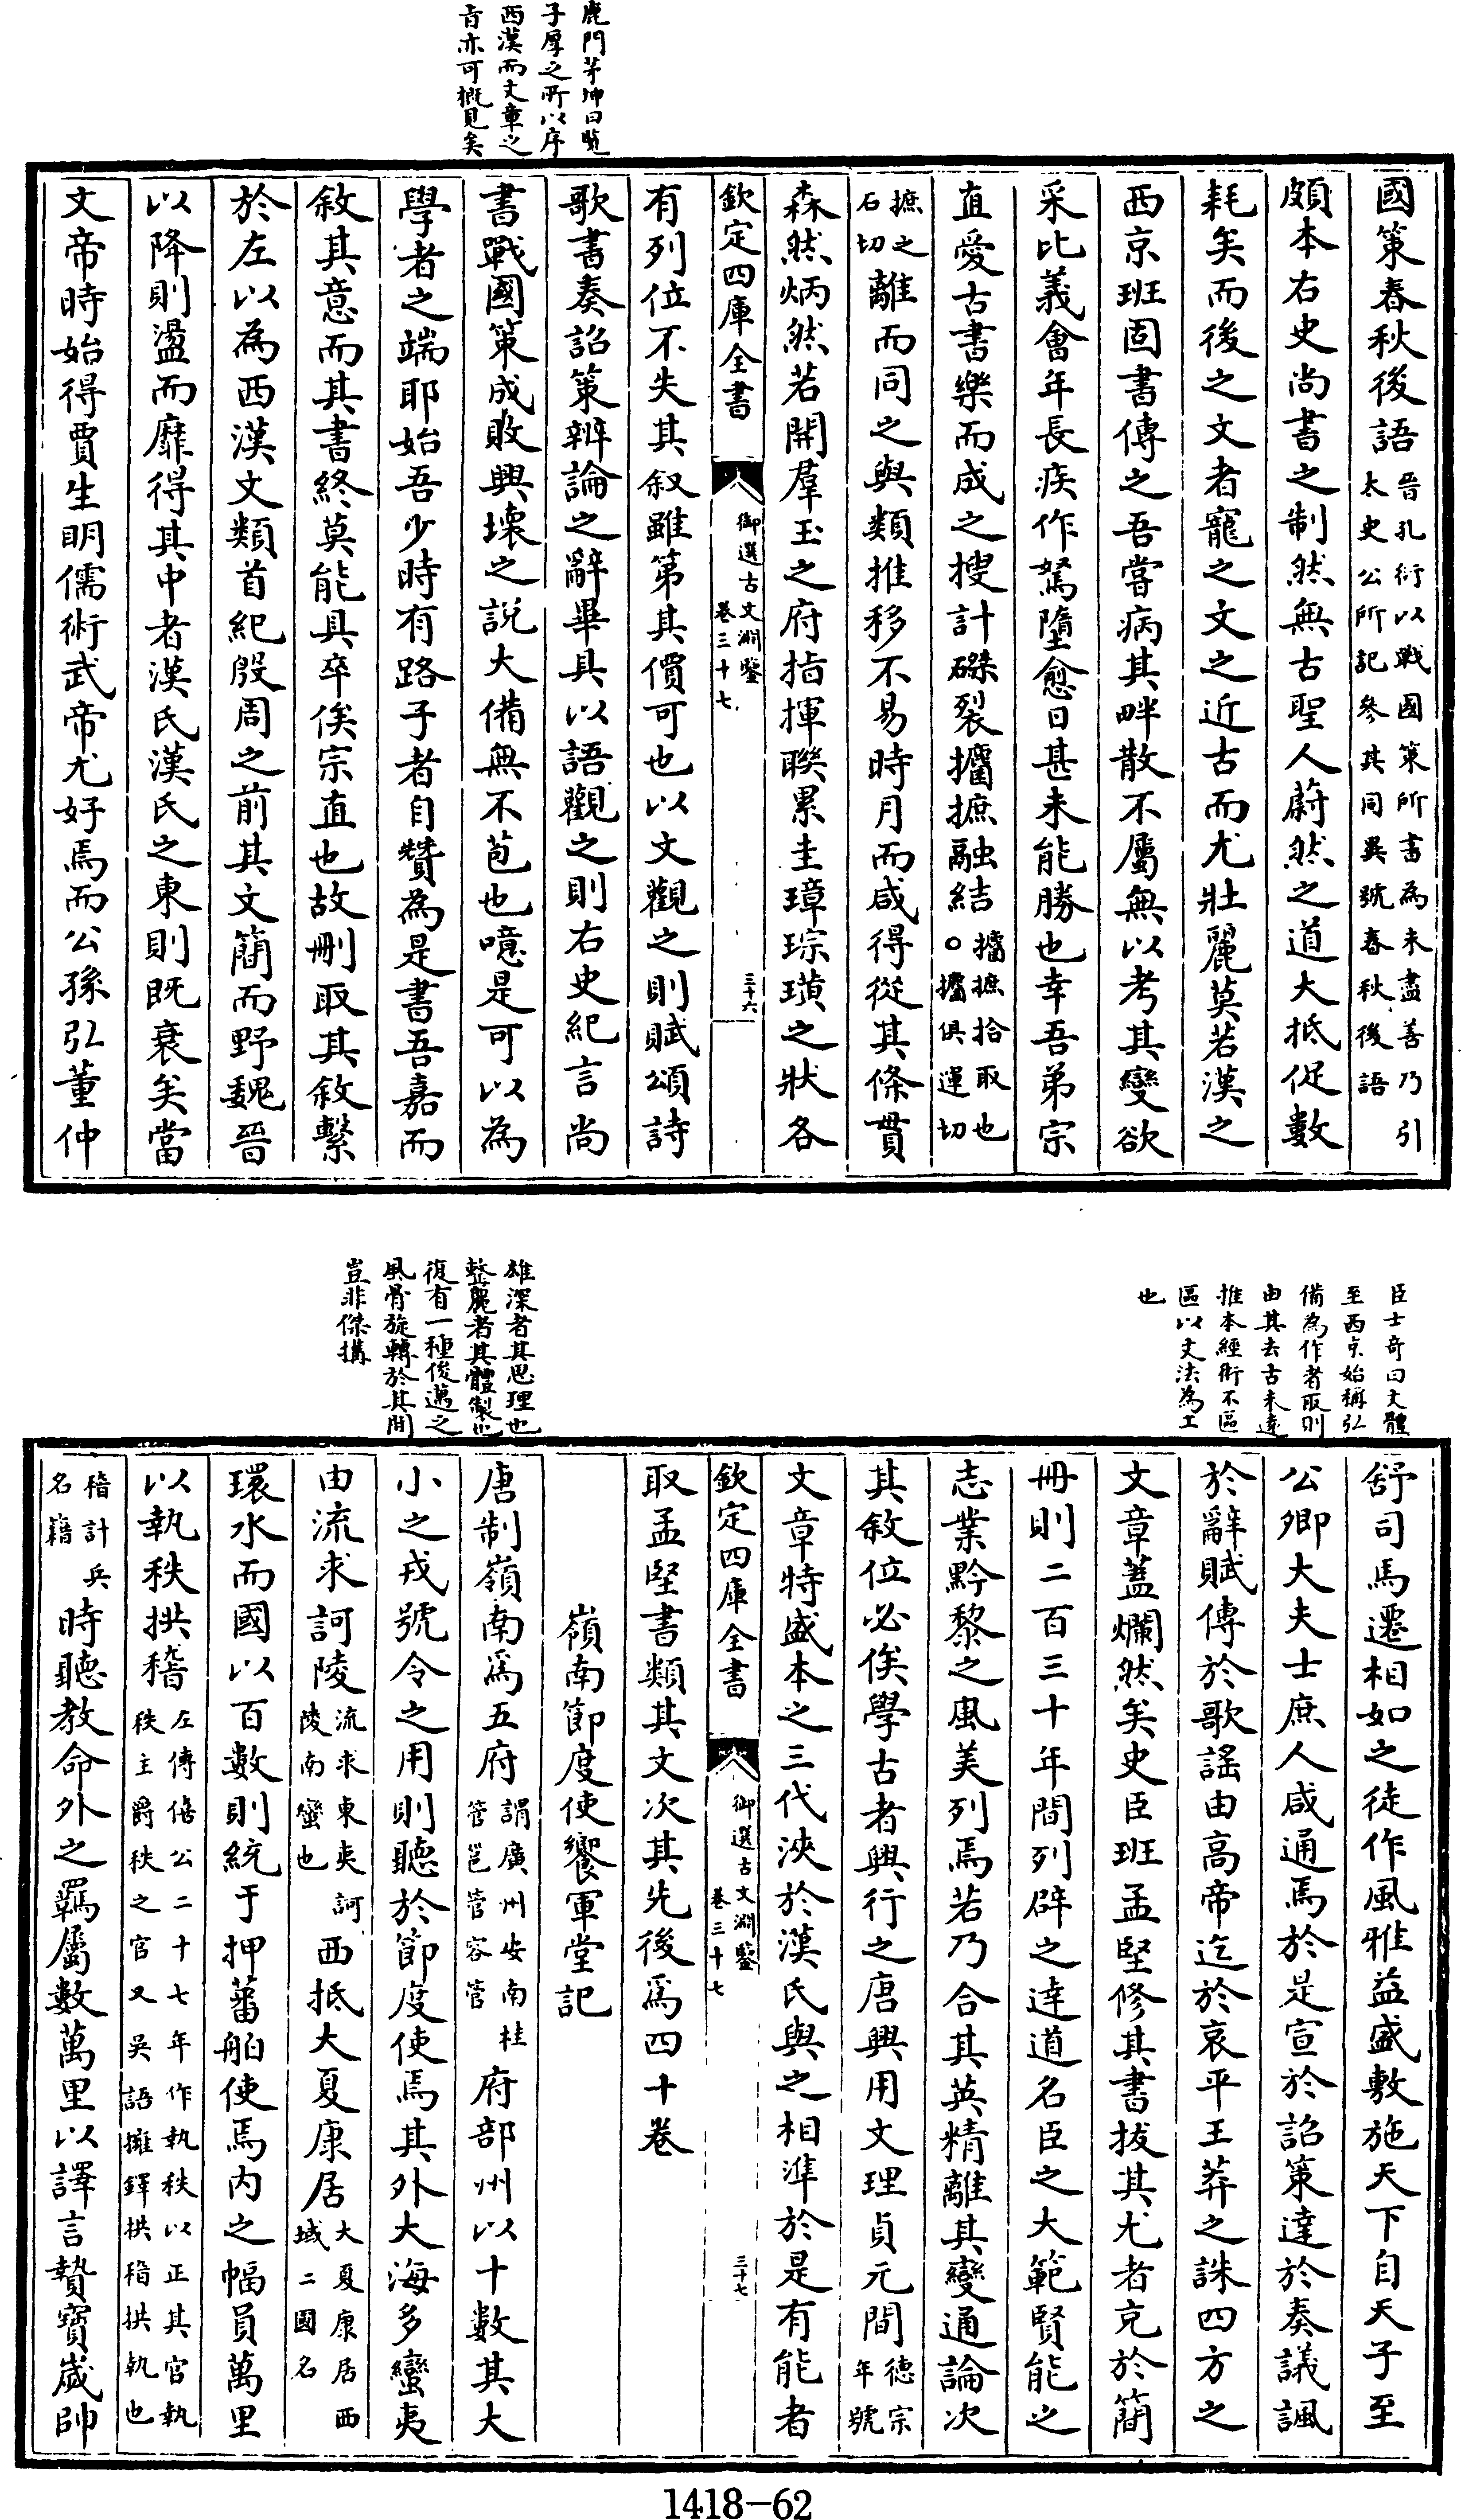 鹿門茅坤曰覧
子厚之所以序
西漢而文章之
旨亦可概見矣
國策春秋後語晉孔衍以戰國策所書為未盡善乃引太史公所記參其同異號春秋後語
頗本右史尚書之制然無古聖人蔚然之道大抵促數
耗矣而後之文者寵之文之近古而尤壯麗莫若漢之
西京班固書傳之吾嘗病其畔散不屬無以考其變欲
采比義會年長疾作駑墮愈日甚未能勝也幸吾弟宗
直愛古書樂而成之搜計磔裂攟摭融結攟摭拾取也○攟俱運切
摭之石切離而同之與類推移不易時月而咸得從其條貫
森然炳然若開羣玉之府指揮聯累圭璋琮璜之狀各
欽定四庫全書
御選古文淵鑒
卷三十七
三十六
有列位不失其叙雖第其價可也以文觀之則賦頌詩
歌書奏詔策辨論之辭畢具以語觀之則右史紀言尚
書戰國策成敗興壞之說大備無不苞也噫是可以為
學者之端耶始吾少時有路子者自贊為是書吾嘉而
敘其意而其書終莫能具卒俟宗直也故刪取其敘繫
於左以為西漢文類首紀殷周之前其文簡而野魏晉
以降則盪而靡得其中者漢氏漢氏之東則既衰矣當
文帝時始得賈生明儒術武帝尤好焉而公孫弘董仲
臣士奇曰文體
至西京始稱弘
備為作者取則
由其去古未遠
推本經術不區
區以文法為工
也
雄深者其思理也
整麗者其體製也
復有一種俊邁之
風骨旋轉於其間
豈非傑搆
舒司馬遷相如之徒作風雅益盛敷施天下自天子至
公卿大夫士庶人咸通焉於是宣於詔策達於奏議諷
於辭賦傳於歌謡由高帝迄於哀平王莽之誅四方之
文章蓋爛然矣史臣班孟堅修其書拔其尤者克於簡
冊則二百三十年間列辟之達道名臣之大範賢能之
志業黔黎之風美列焉若乃合其英精離其變通論次
其敘位必俟學古者興行之唐興用文理貞元間德宗年號
文章特盛本之三代浹於漢氏與之相準於是有能者
欽定四庫全書
御選古文淵鑒
卷三十七
三十七
取孟堅書類其文次其先後爲四十卷
嶺南節度使饗軍堂記
唐制嶺南爲五府謂廣州安南桂管邕管容管府部州以十數其大
小之戎號令之用則聽於節度使焉其外大海多蠻夷
由流求訶陵流求東夷訶陵南蠻也西抵大夏康居大夏康居西域二國名
環水而國以百數則統于押蕃舶使焉内之幅員萬里
以執秩拱稽左傳僖公二十七年作執秩以正其官執秩主爵秩之官又吳語擁鐸拱稽拱執也
稽計兵名籍時聽教命外之羈屬數萬里以譯言贄寶嵗帥
1418-62